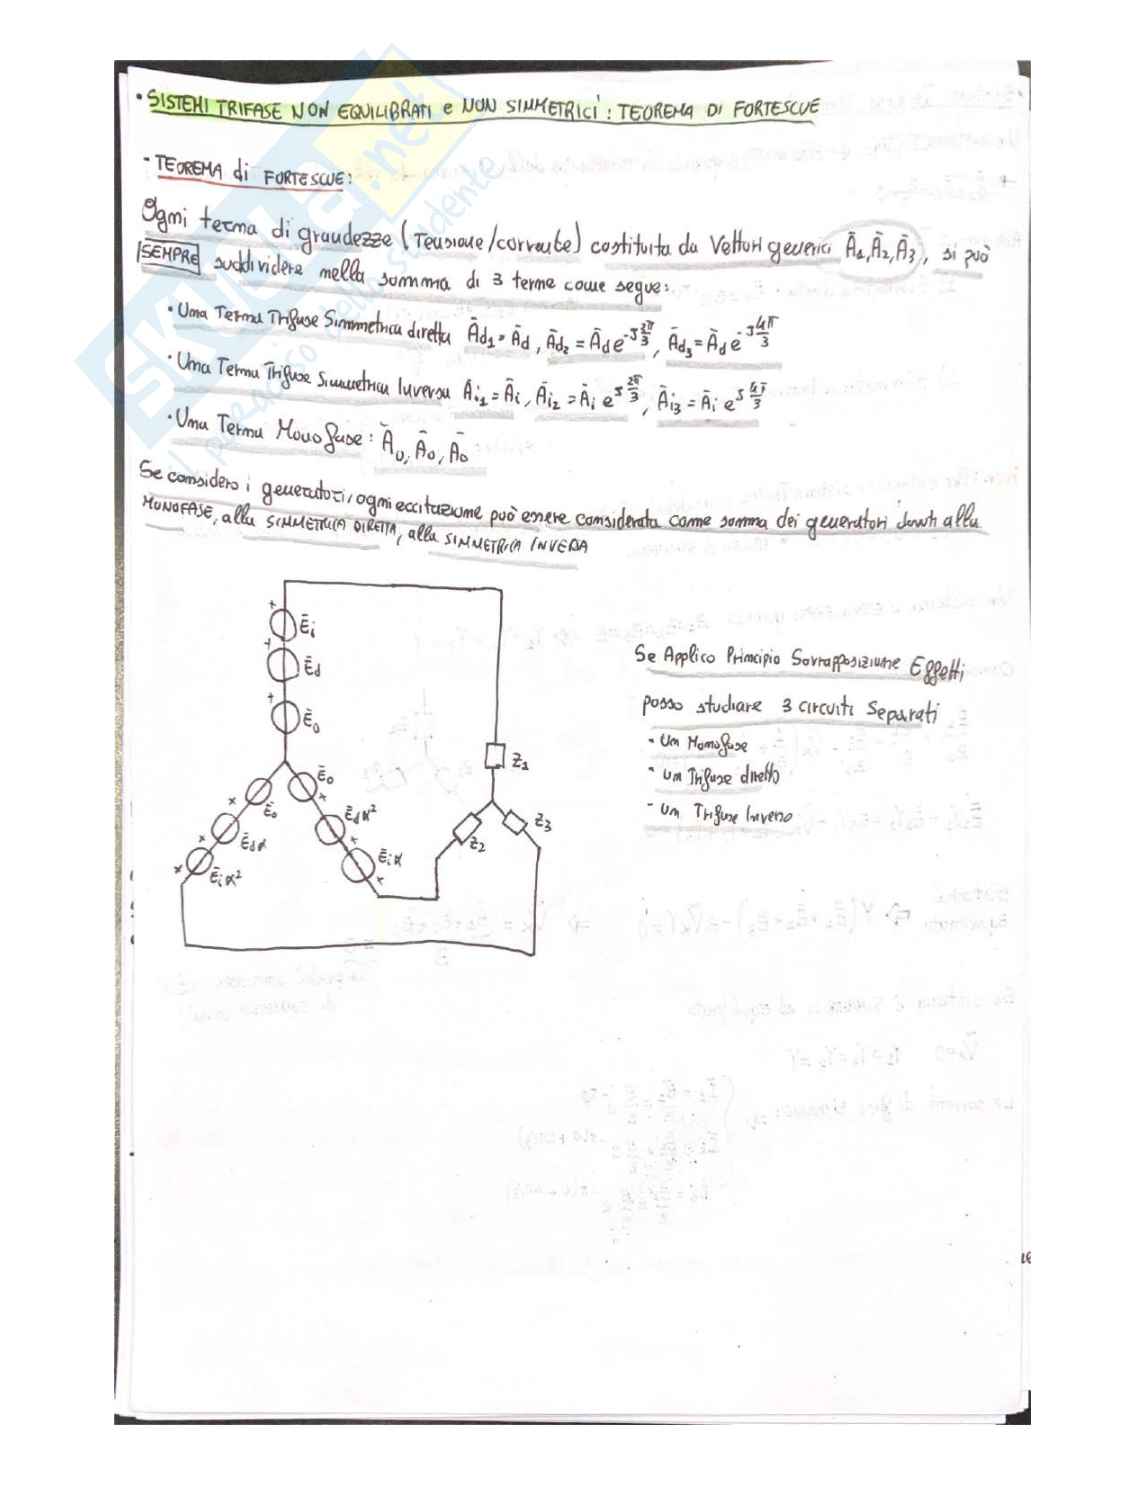 • SISTEMI TRIFASE NON EQUILIBRATI e NON SIMMETRICI : TEOREMA DI FORTESCUE
- TEOREMA di FORTESCUE:
Ogni terna di grandezze (Tensione/corrente) costituita da Vettori generici Ā1, Ā2, Ā3, si può
SEMPRE suddividere nella somma di 3 terne come segue:
• Una Terna Trifase Simmetrica diretta Ād1 = Ād, Ād2 = Ād e^-J 2π/3, Ād3 = Ād e^-J 4π/3
• Una Terna Trifase Simmetrica Inversa Āi1 = Āi, Āi2 = Āi e^J 2π/3, Āi3 = Āi e^J 4π/3
• Una Terna Monofase: Ā0, Ā0, Ā0
Se considero i generatori, ogni eccitazione può essere considerata come somma dei generatori dovuti alla
MONOFASE, alla SIMMETRICA DIRETTA, alla SIMMETRICA INVERSA
+ Ēi
+ Ēd
+ Ē0
Se Applico Principio Sovrapposizione Effetti
posso studiare 3 circuiti Separati
- Un Monofase
- un Trifase diretto
- un Trifase Inverso
Z1
Ē0 Ē0
Ēdα Ēdα²
Ēiα² Ēiα
Z2 Z3
SKUOLA.net
il paradiso dello studente